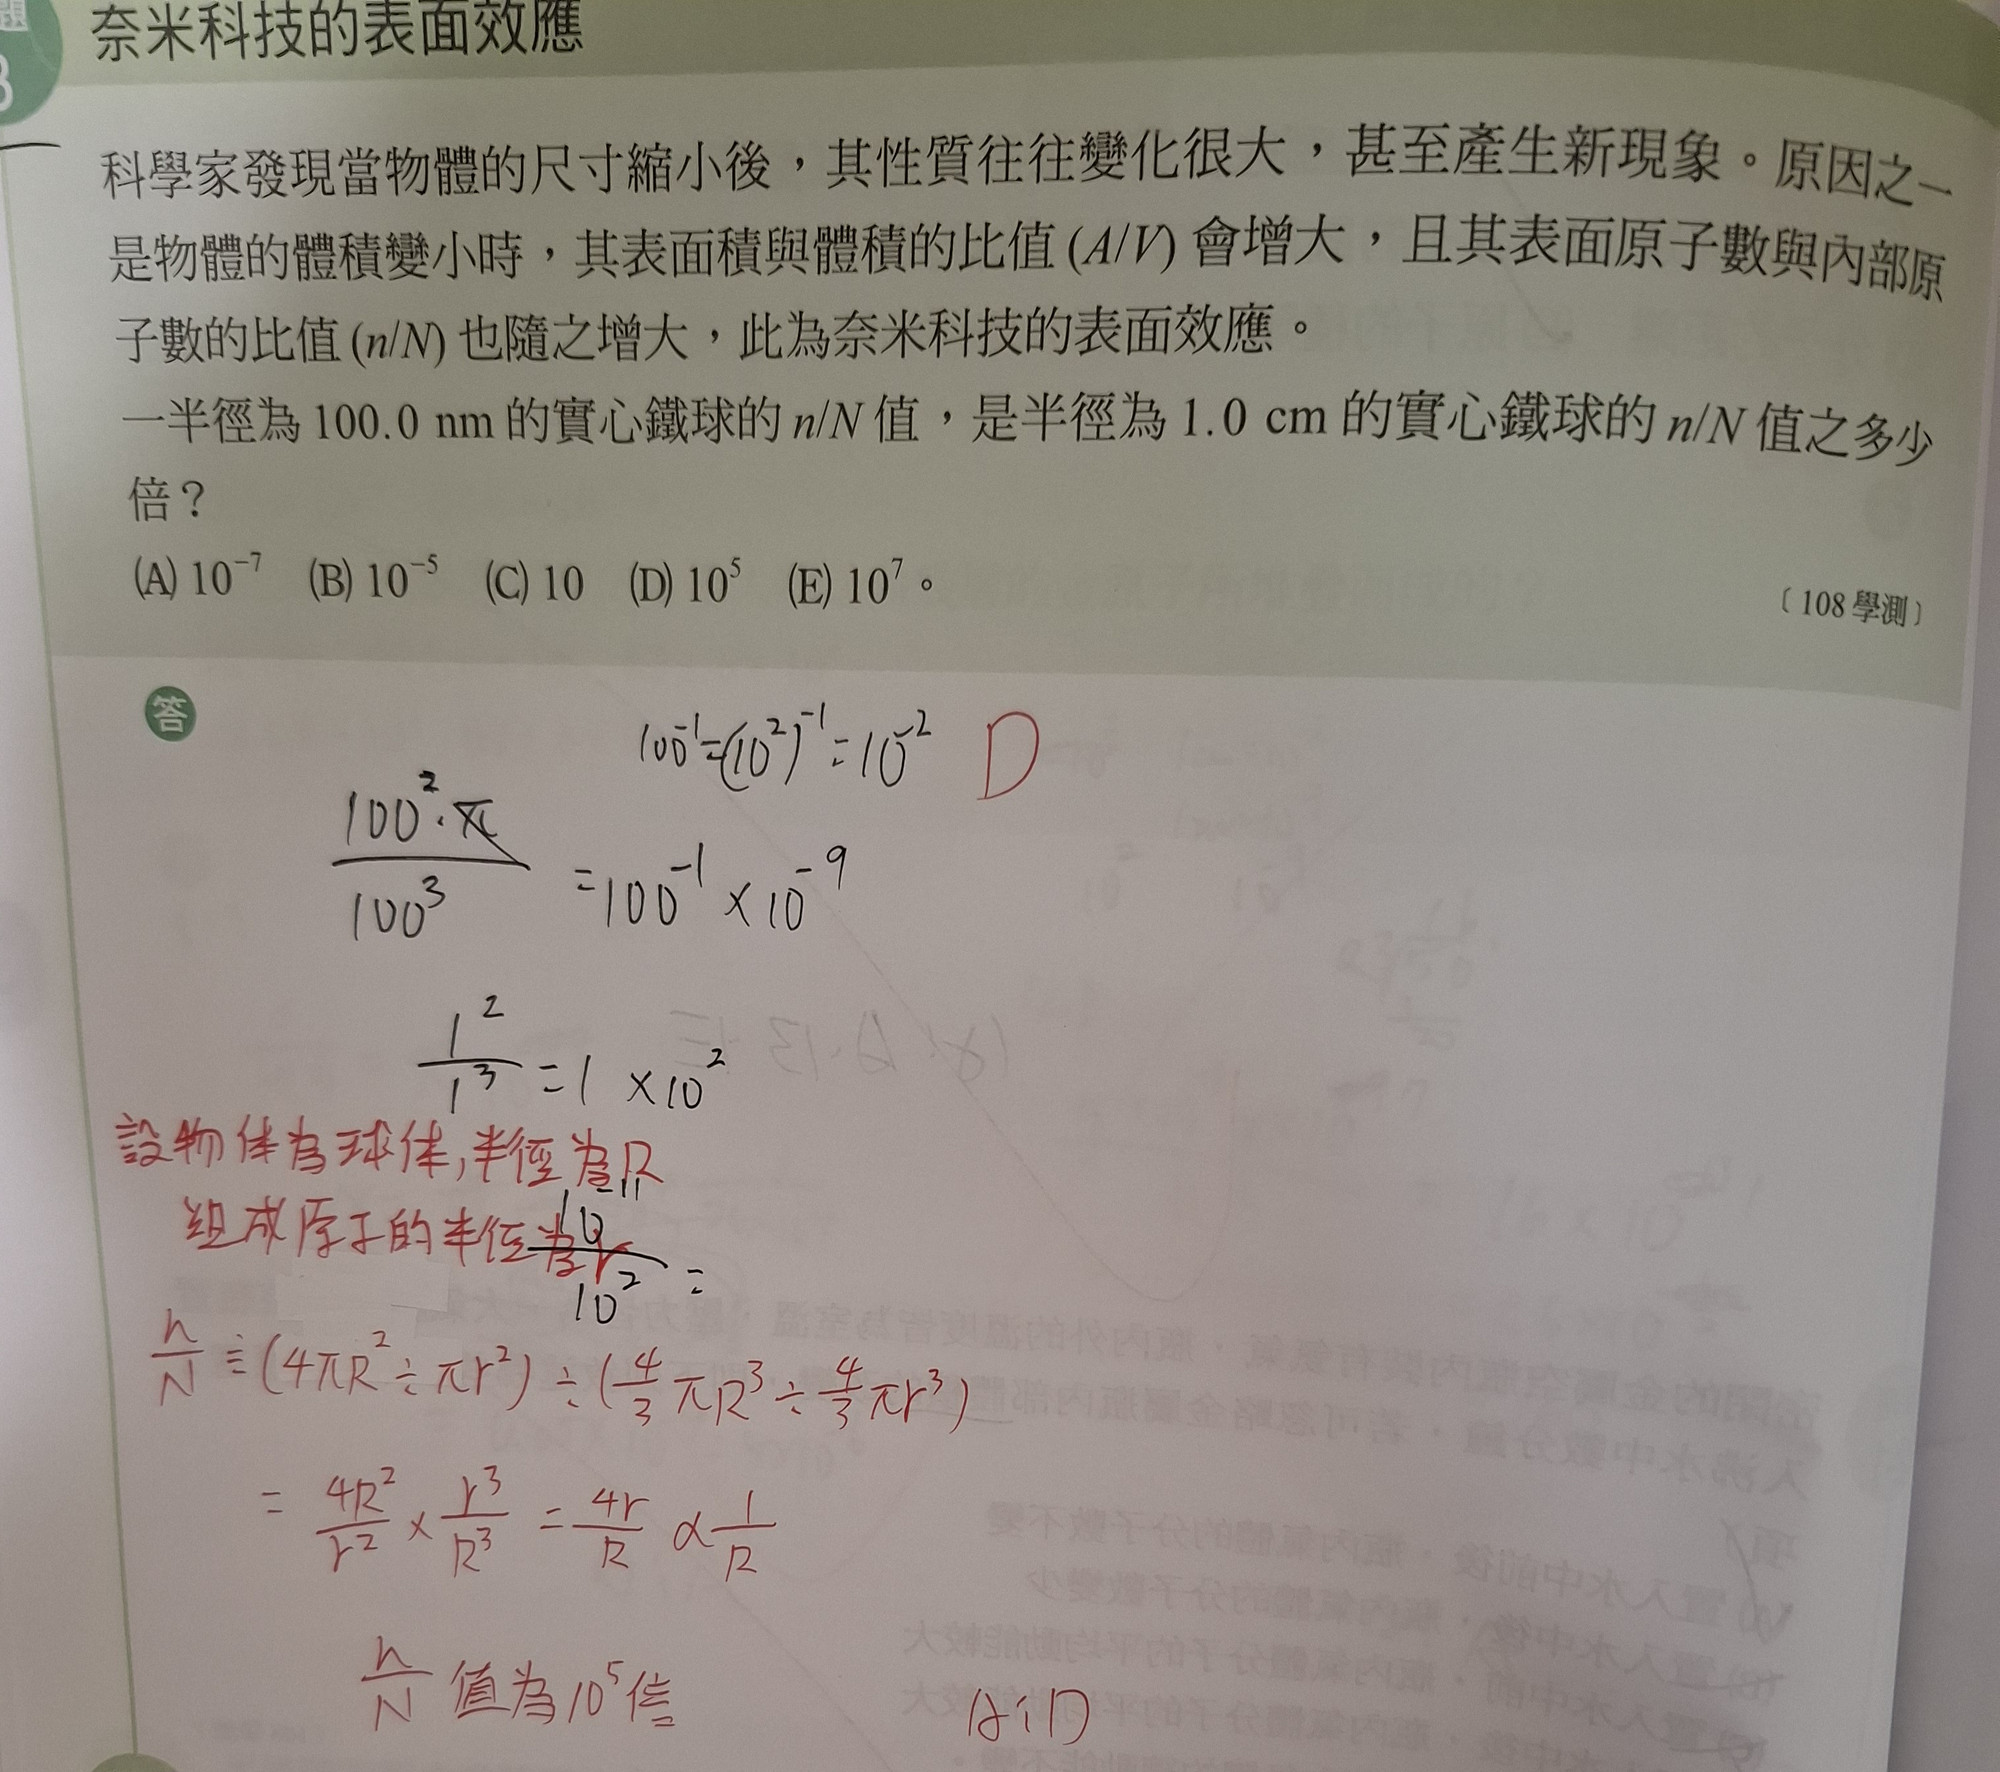 題
3
奈米科技的表面效應
科學家發現當物體的尺寸縮小後，其性質往往變化很大，甚至產生新現象。原因之一
是物體的體積變小時，其表面積與體積的比值 (A/V) 會增大，且其表面原子數與內部原
子數的比值 (n/N) 也隨之增大，此為奈米科技的表面效應。
一半徑為 100.0 nm 的實心鐵球的 n/N 值，是半徑為 1.0 cm 的實心鐵球的 n/N 值之多少
倍？
(A) 10⁻⁷ (B) 10⁻⁵ (C) 10 (D) 10⁵ (E) 10⁷。
〔108 學測〕
答
100⁻¹=(10²)⁻¹=10⁻² D
100²·π / 100³ =100⁻¹×10⁻⁹
1²/1³ =1 ×10²
設物体為球体,半徑為R
組成原子的半徑為r
10⁻¹¹/10² =
n/N = (4πR²÷πr²)÷(4/3 πR³÷4/3 πr³)
= 4R²/r² × r³/R³ = 4r/R ∝ 1/R
n/N 值為10⁵倍